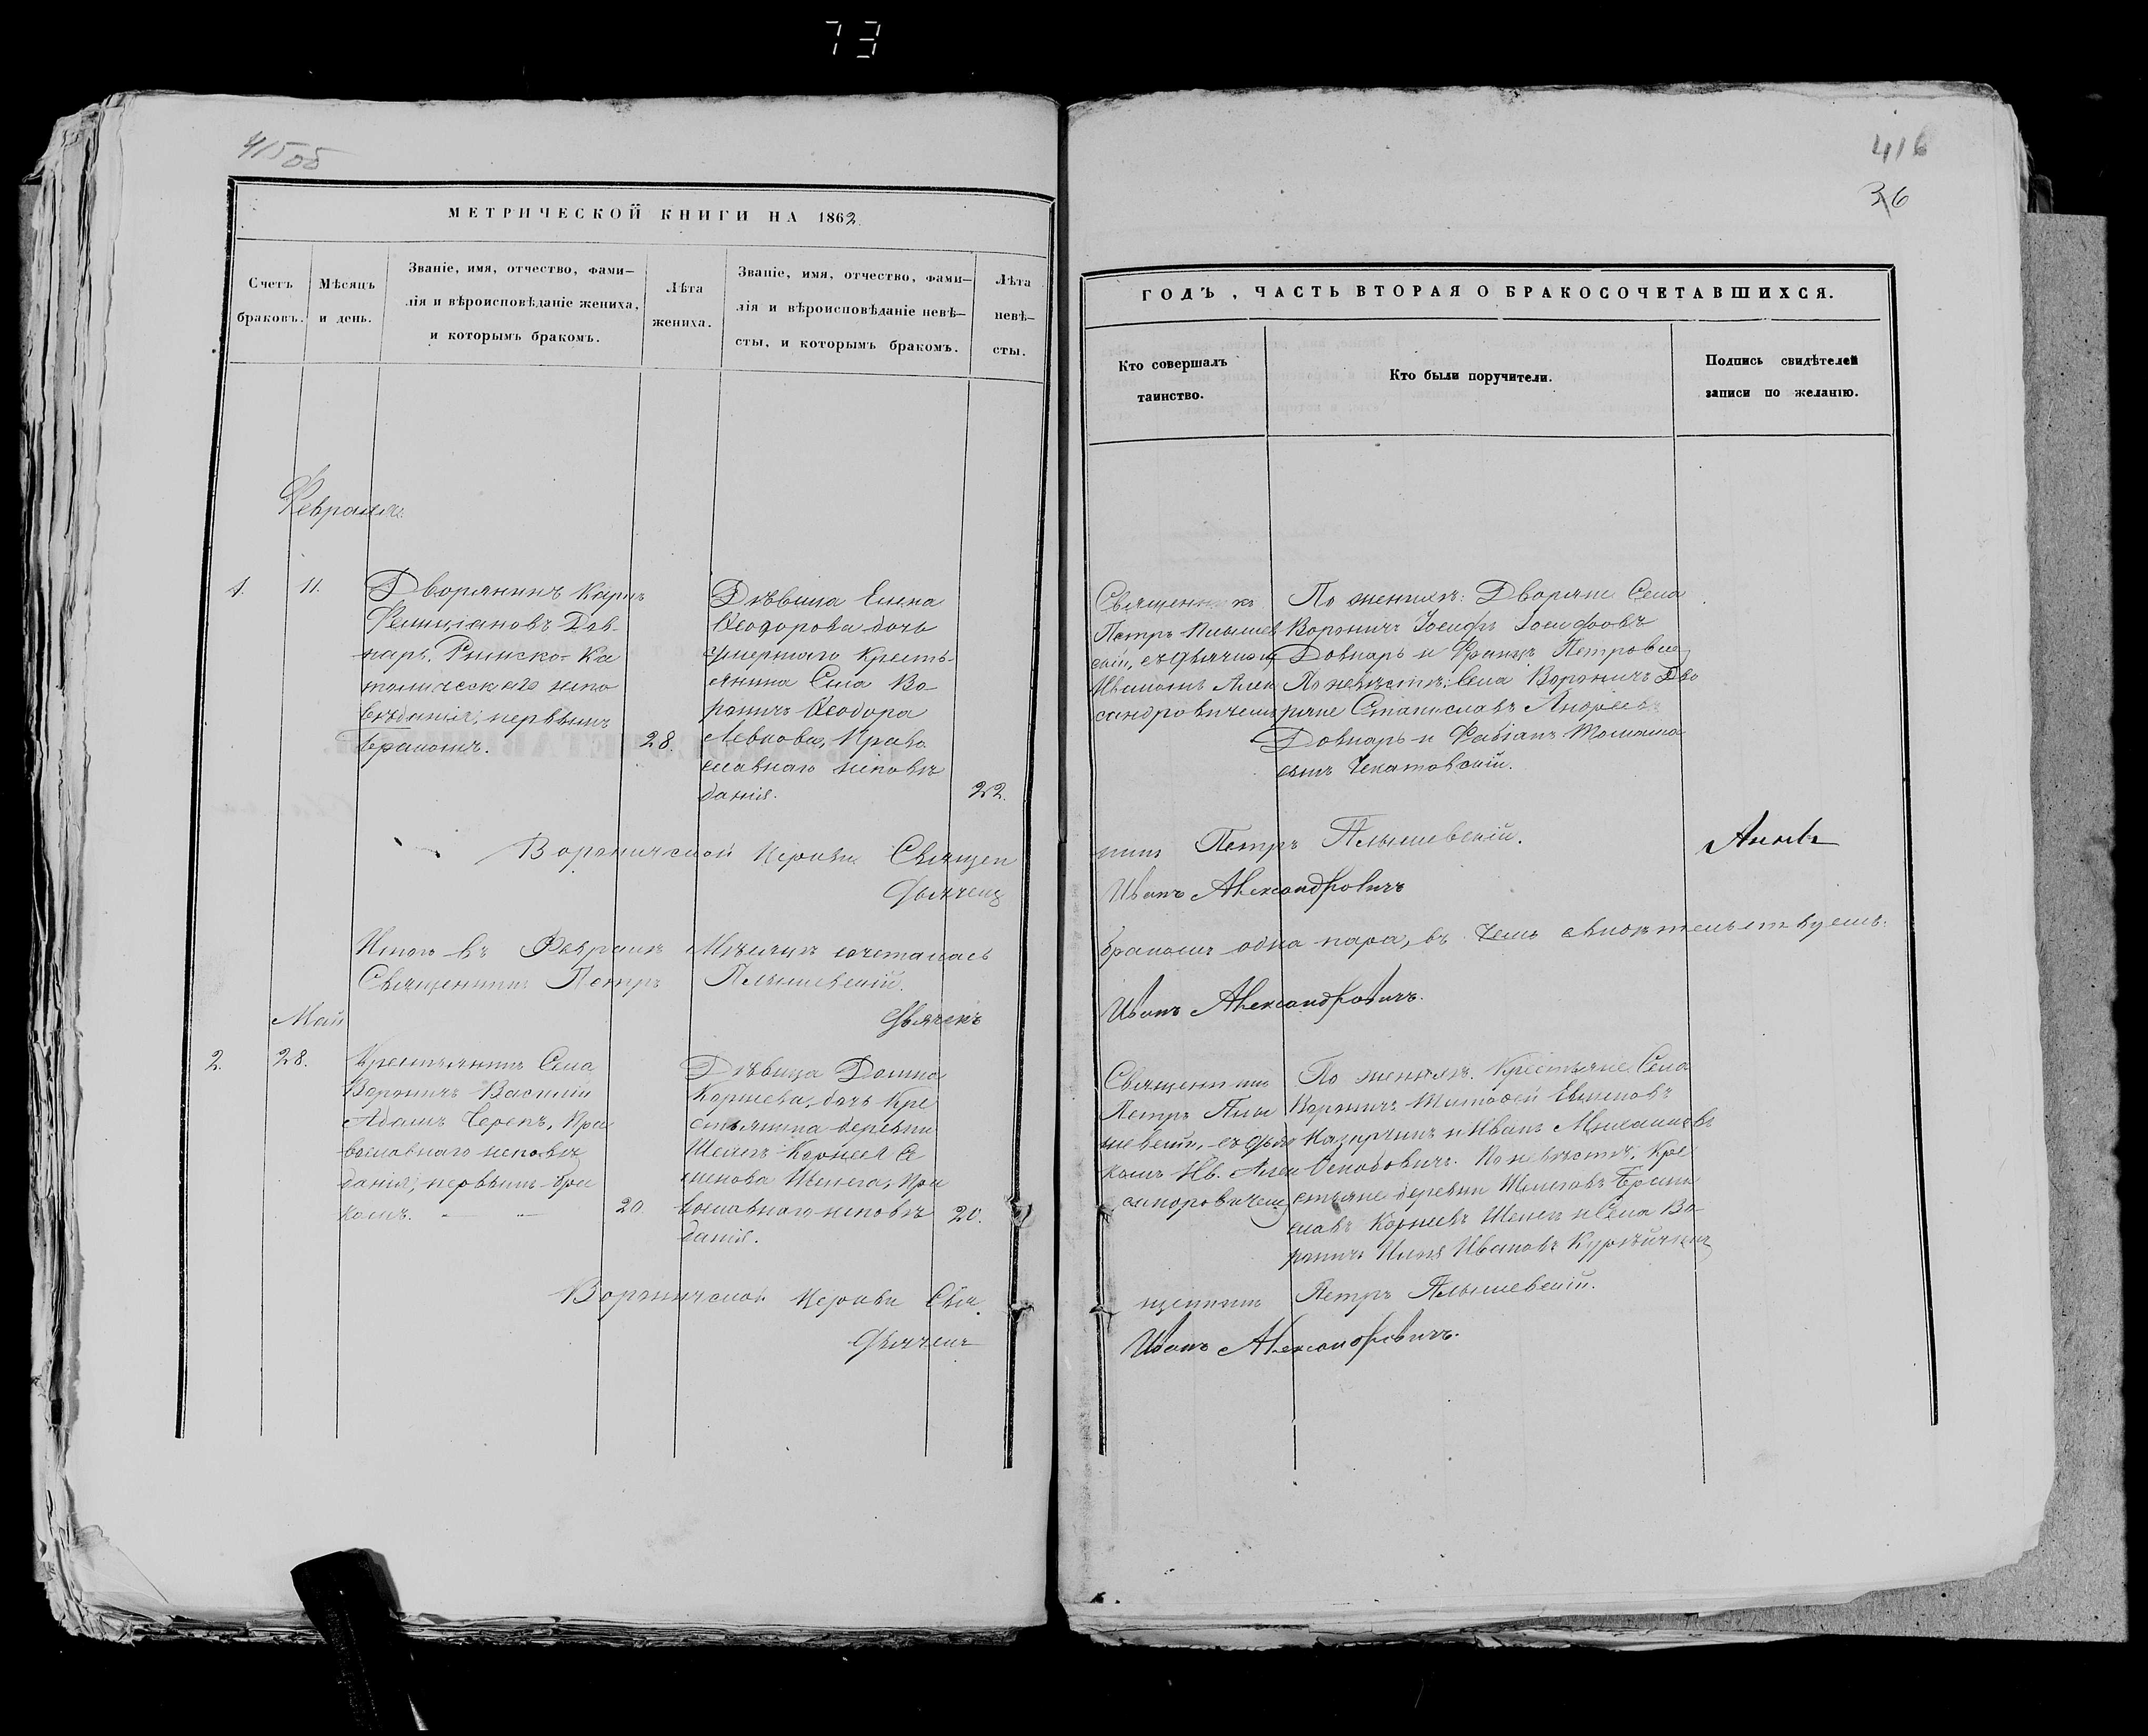 73
415об
МЕТРИЧЕСКОЙ КНИГИ НА 1862
Счетъ браковъ.
Мѣсяцъ и день.
Званіе, имя, отчество, фами–
лія и вѣроисповѣданіе жениха,
и которымъ бракомъ.
Лѣта
жениха.
Званіе, имя, отчество, фами–
лія и вѣроисповѣданіе невѣ–
сты, и которымъ бракомъ.
Лѣта
невѣ–
сты.
Февраля
1.
11.
Дворянинъ Карлъ
Фелиціановъ Дов-
наръ, Римско-Ка
толическаго испо
вѣданія, первымъ
бракомъ.
28.
Дѣвица Елена
Ѳеодорова дочь
умершаго кресть-
янина Села Во-
роничъ Ѳеодора
Левкова, Право
славнаго исповѣ
данія.
22.
Вороничской Церкви Священ
Дьячекъ
Итого въ Февралѣ Мѣсяцѣ сочеталась
Священникъ Петръ Плышевскій.
Дьячекъ
Май
2.
28.
Крестьянинъ Села
Вороничъ Василій
Адамъ Черепъ, Пра
вославнаго исповѣ
данія, первымъ бра
комъ.
20.
Дѣвица Домна
Корнеева, дочь кре
стьянина деревни
Корнея Се
менова Пра
вославнаго исповѣ
данія.
20.
Вороничской Церкви Свя
Дьячекъ
416
36
ГОДЪ, ЧАСТЬ ВТОРАЯ О БРАКОСОЧЕТАВШИХСЯ.
Кто совершалъ
таинство.
Кто были поручители.
Подпись свидѣтелей
записи по желанію.
Священникъ
Петръ Плышев
скій, съ дьячкомъ
Иваномъ Алек
сандровичемъ
По женихѣ: Дворяне Села
Вороничъ Іосифъ Іосифовъ
Довнаръ и Францъ Петровъ
По невѣстѣ: Села Вороничъ Дво
ряне Станиславъ Андреевъ
Довнаръ и Фабіанъ Томашо
скій.
никъ Петръ Плышевскій.
Иванъ Александровичъ
бракомъ одна пара, въ чемъ свидѣтельствуемъ.
Иванъ Александровичъ.
Священникъ
Петръ Плы
шевскій, съ дьяч
комъ Ив. Алек
сандровичемъ
По женихѣ. Крестьяне Села
Вороничъ Тимофей
и Иванъ
По невѣстѣ, кре
стьяне деревни
Корнеевъ и Села Во-
роничъ Илья Ивановъ
щенникъ Петръ Плышевскій.
Иванъ Александровичъ.